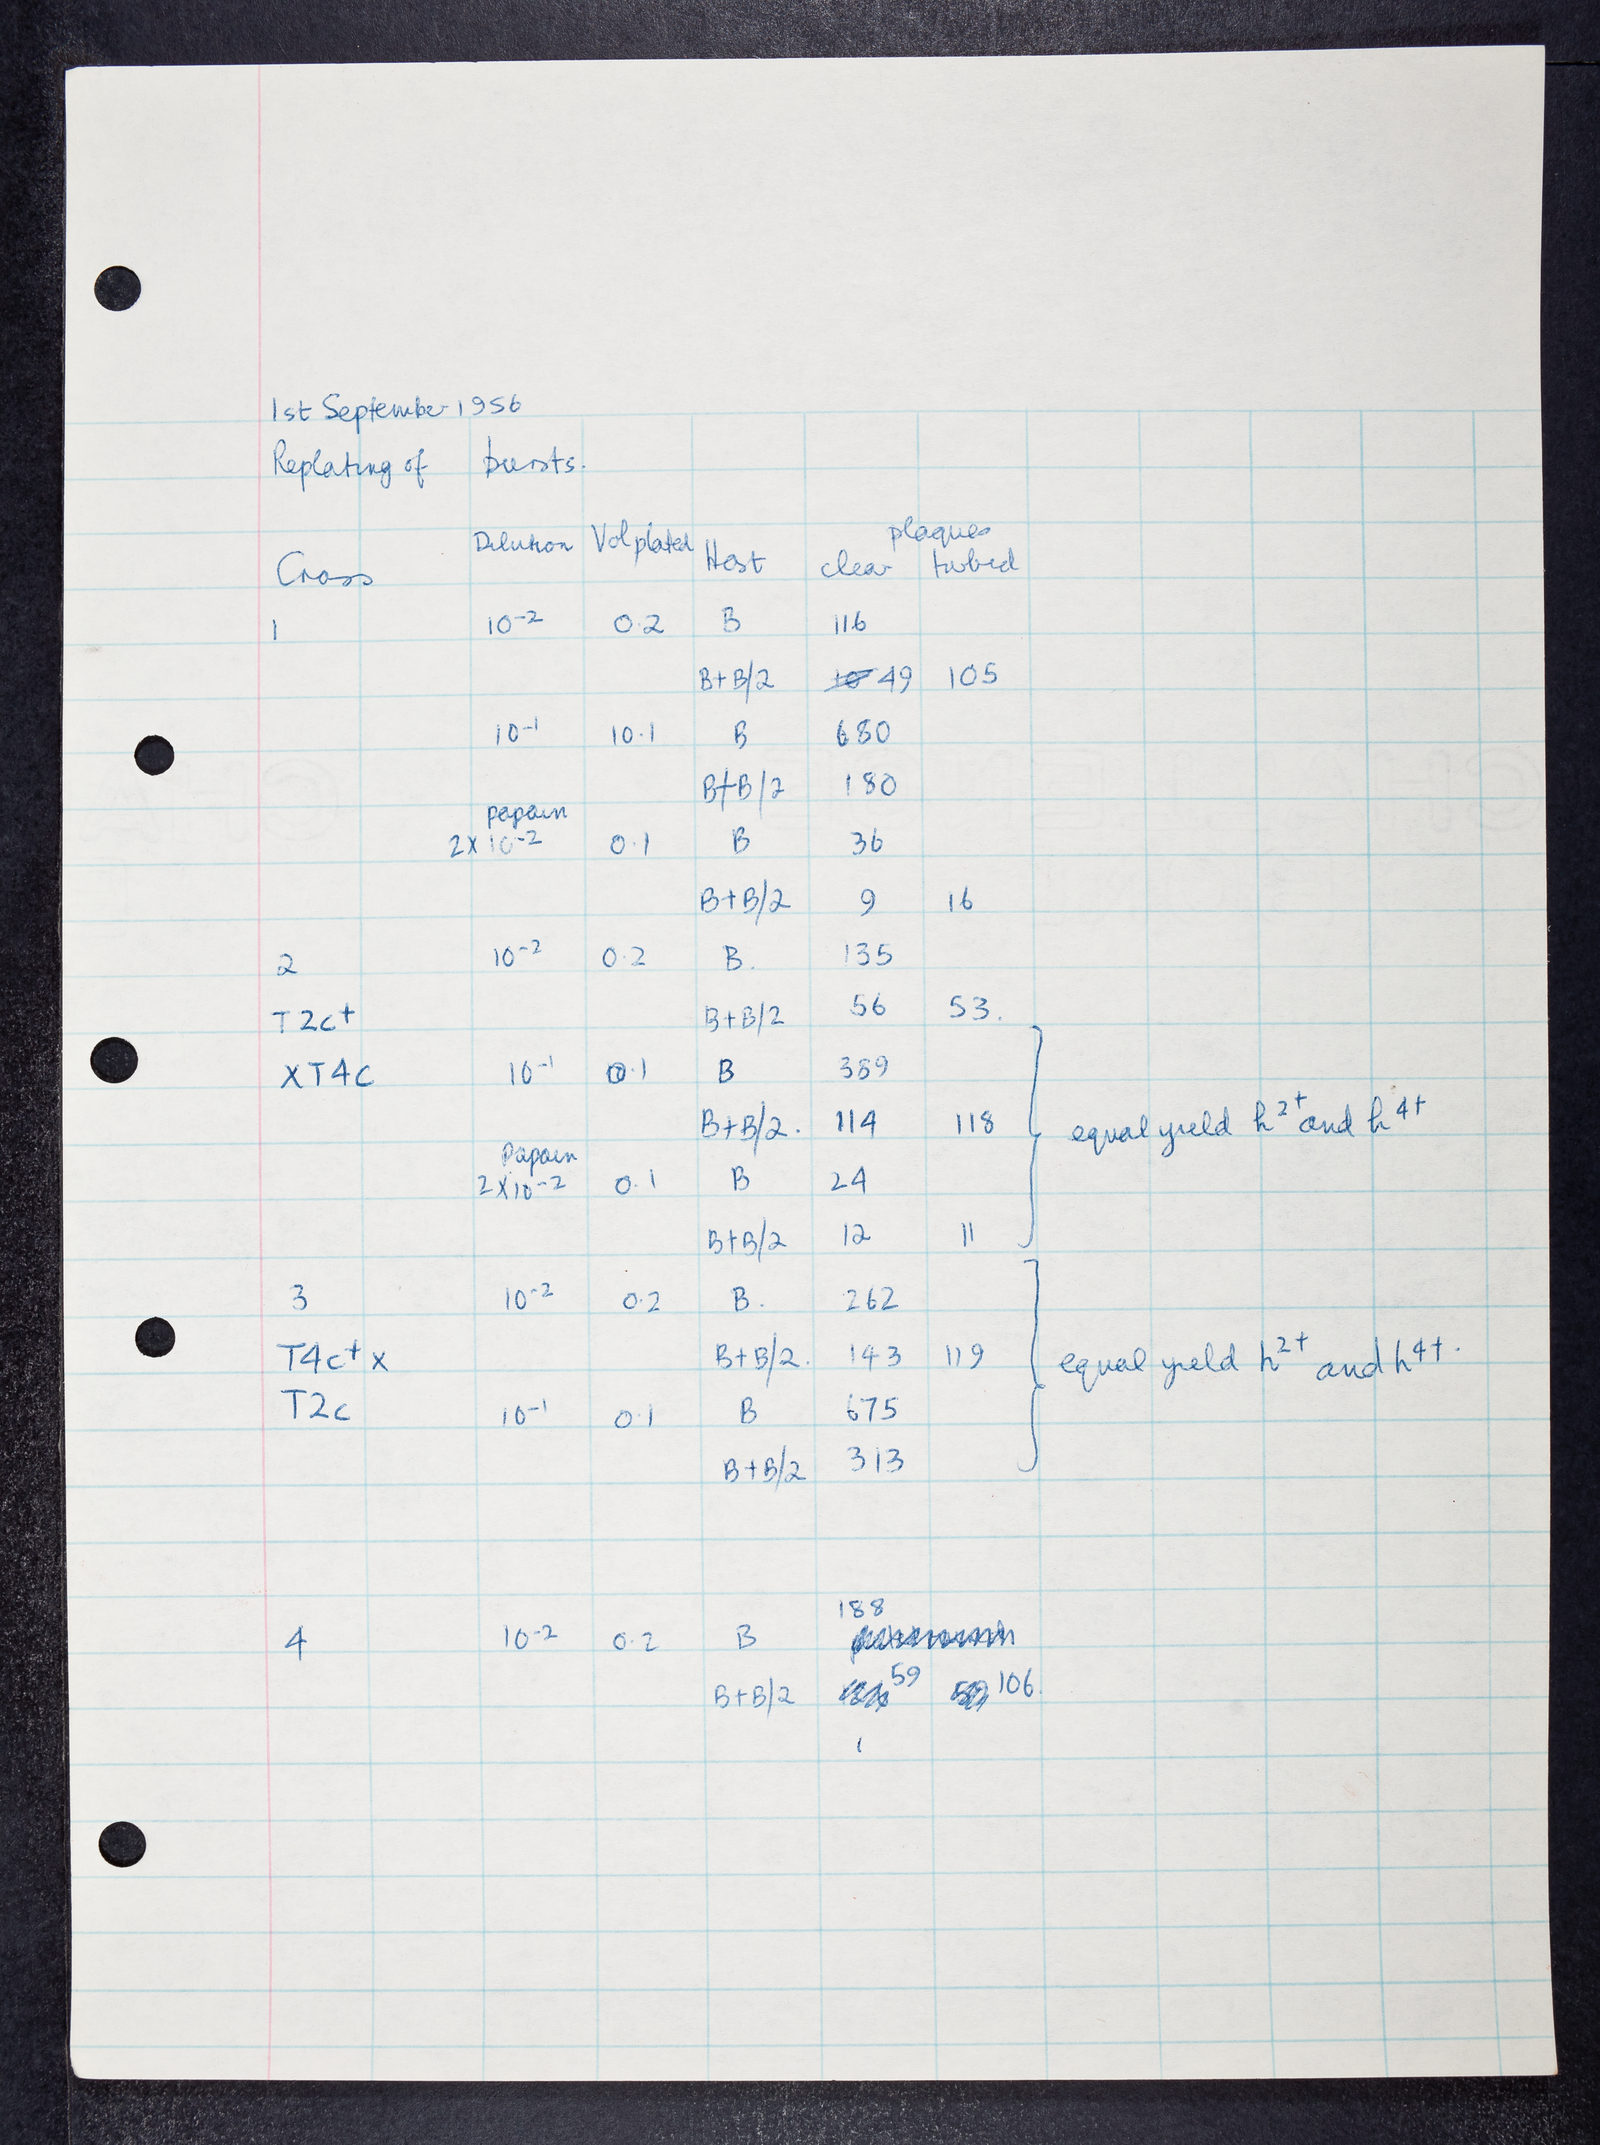 1st September 1956
Replating of bursts.
plaques
Cross Dilution Vol plated Host clear turbid
1 10⁻² 0.2 B 116
B+B/2 49 105
10⁻¹ 10.1 B 680
B+B/2 180
papain
2x10⁻² 0.1 B 36
B+B/2 9 16
2 10⁻² 0.2 B. 135
T2c⁺ B+B/2 56 53.
XT4c 10⁻¹ 0.1 B 389
B+B/2. 114 118 equal yield h²⁺ and h⁴⁺
Papain
2x10⁻² 0.1 B 24
B+B/2 12 11
3 10⁻² 0.2 B. 262
T4c⁺ x B+B/2. 143 119 equal yield h²⁺ and h⁴⁺.
T2c 10⁻¹ 0.1 B 675
B+B/2 313
188
4 10⁻² 0.2 B
B+B/2 59 106.